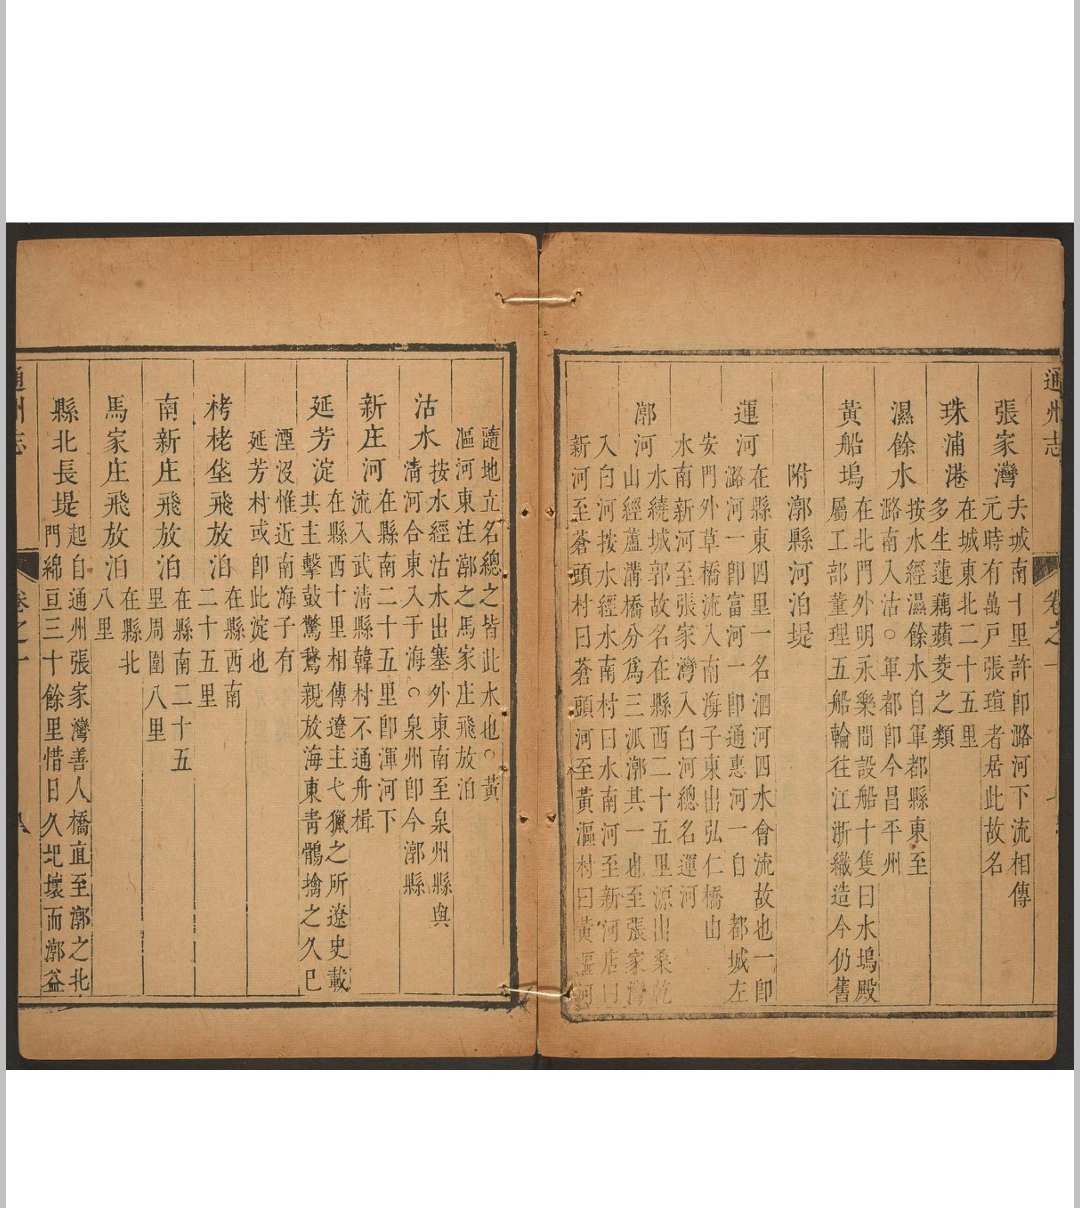 通州志
卷之一
張家灣
去城南十里許卽潞河下流相傳
元時有萬戶張瑄者居此故名
珠浦港
在城東北二十五里
多生蓮藕蘋菱之類
濕餘水
按水經濕餘水自軍都縣東至
潞南入沽○軍都卽今昌平州
黃船塢
在北門外明永樂間設船十隻曰水塢殿
屬工部董理五船輪往江浙織造今仍舊
附漷縣河泊堤
運河
在縣東四里一名泗河四水會流故也一卽
潞河一卽富河一卽通惠河一自 都城左
安門外草橋流入南海子東出弘仁橋由
水南新河至張家灣入白河總名運河
漷河
水繞城郭故名在縣西二十五里源出桑乾
山經蘆溝橋分爲三派漷其一也至張家灣
入白河按水經水南村曰水南河至新河店曰
新河至蒼頭村曰蒼頭河至黃漚村曰黃漚河
隨地立名總之皆此水也○黃
漚河東注漷之馬家庄飛放泊
沽水
按水經沽水出塞外東南至泉州縣與
清河合東入于海○泉州卽今漷縣
新庄河
在縣南二十五里卽渾河下
流入武清縣韓村不通舟楫
延芳淀
在縣西十里相傳遼主弋獵之所遼史載
其主擊鼓驚鵞親放海東靑鶻擒之久已
湮沒惟近南海子有
延芳村或卽此淀也
栲栳垡飛放泊
在縣西南
二十五里
南新庄飛放泊
在縣南二十五
里周圍八里
馬家庄飛放泊
在縣北
八里
縣北長堤
起自通州張家灣善人橋直至漷之北
門綿亘三十餘里惜日久圯壞而漷益
通州志
卷之一